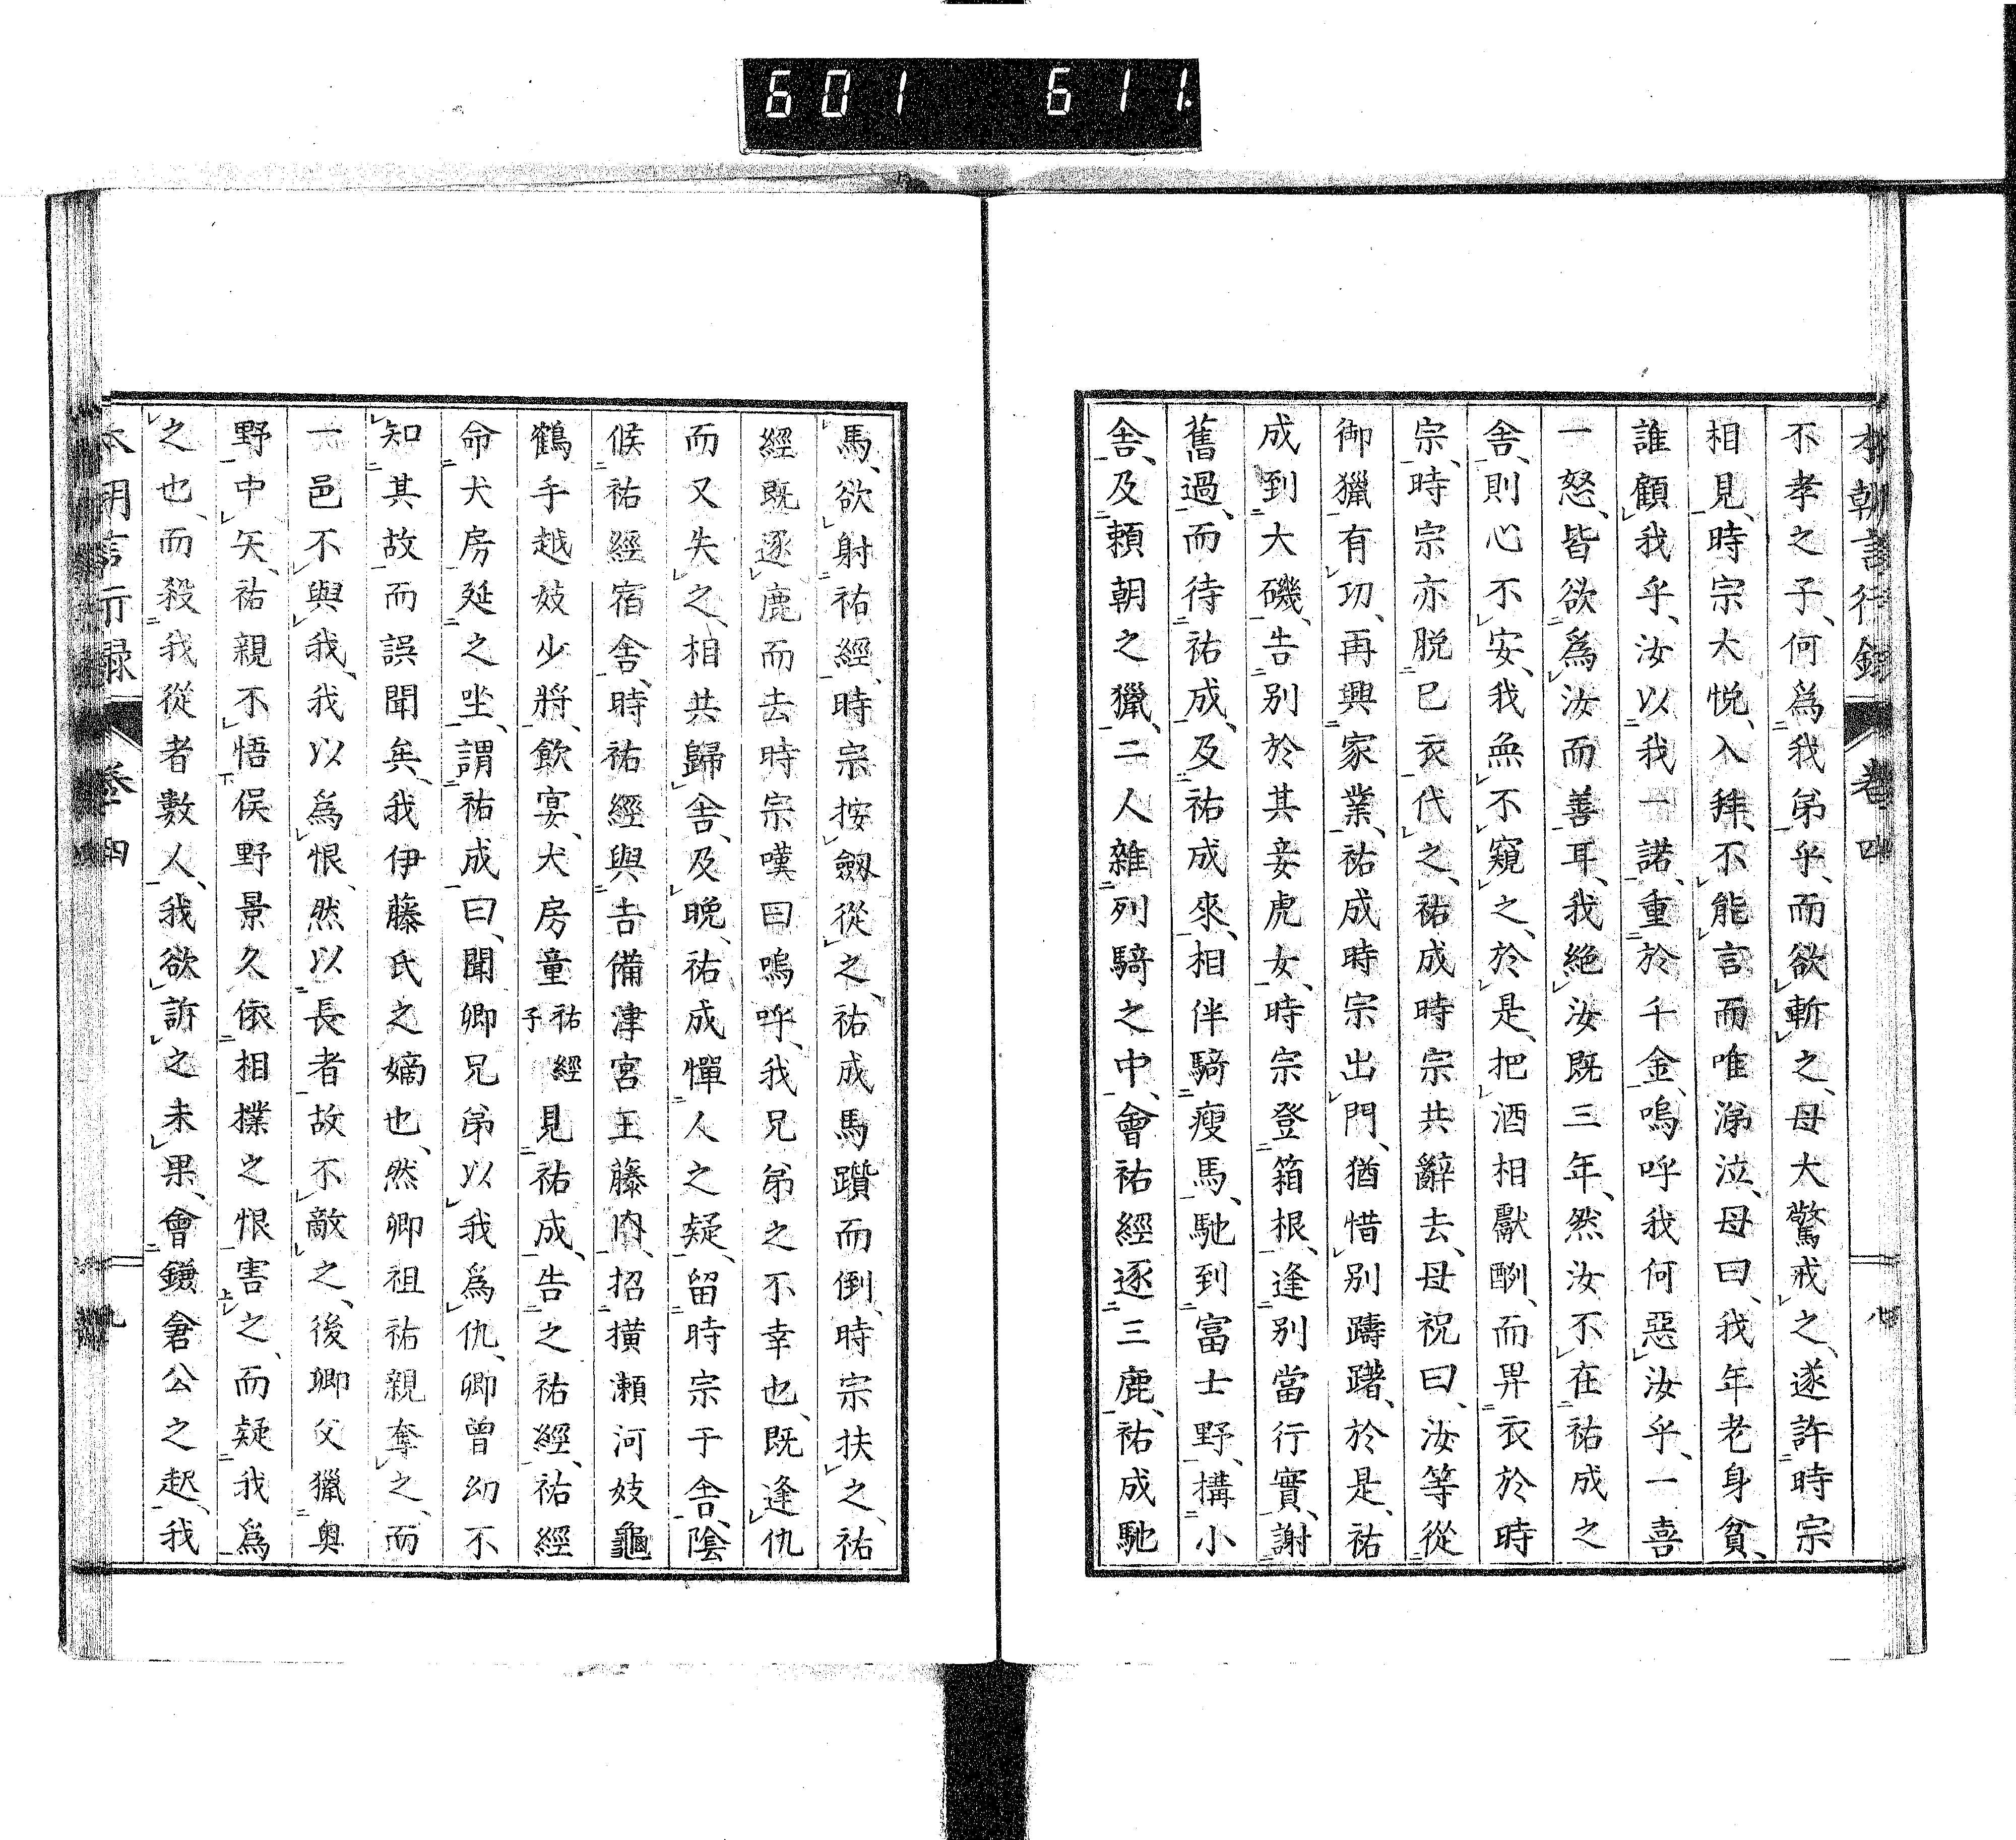 601 611.
本朝言行録 卷四 八
不孝之子、何爲我弟乎、而欲斬之、母大驚戒之、遂許時宗
相見、時宗大悦、入拜、不能言而唯涕泣、母曰、我年老身貧、
誰顧我乎、汝以我一諾、重於千金、嗚呼我何惡汝乎、一喜
一怒、皆欲爲汝而善耳、我絶汝既三年、然汝不在祐成之
舍、則心不安、我無不窺之、於是、把酒相獻酬、而畀衣於時
宗、時宗亦脱已衣代之、祐成時宗共辭去、母祝曰、汝等從
御獵有功、再興家業、祐成時宗出門、猶惜別躊躇、於是、祐
成到大磯、告別於其妾虎女、時宗登箱根、逢別當行實、謝
舊過、而待祐成、及祐成來、相伴騎瘦馬、馳到富士野、構小
舍、及頼朝之獵、二人雜列騎之中、會祐經逐三鹿、祐成馳
馬、欲射祐經、時宗按劔從之、祐成馬躓而倒、時宗扶之、祐
經既逐鹿而去時宗嘆曰嗚呼、我兄弟之不幸也、既逢仇
而又失之、相共歸舍、及晚、祐成憚人之疑、留時宗于舍、陰
候祐經宿舍、時祐經與吉備津宮王藤内、招横瀬河妓龜
鶴手越妓少將、飲宴、犬房童祐經子見祐成、告之祐經、祐經
命犬房延之坐、謂祐成曰、聞卿兄弟以我爲仇、卿曾幼不
知其故而誤聞矣、我伊藤氏之嫡也、然卿祖祐親奪之、而
一邑不與我、我以爲恨、然以長者故不敵之、後卿父獵奥
野中矢、祐親不悟俣野景久依相撲之恨害之、而疑我爲
之也、而殺我從者數人、我欲訴之未果、會鎌倉公之起、我
本朝言行録 卷四 九